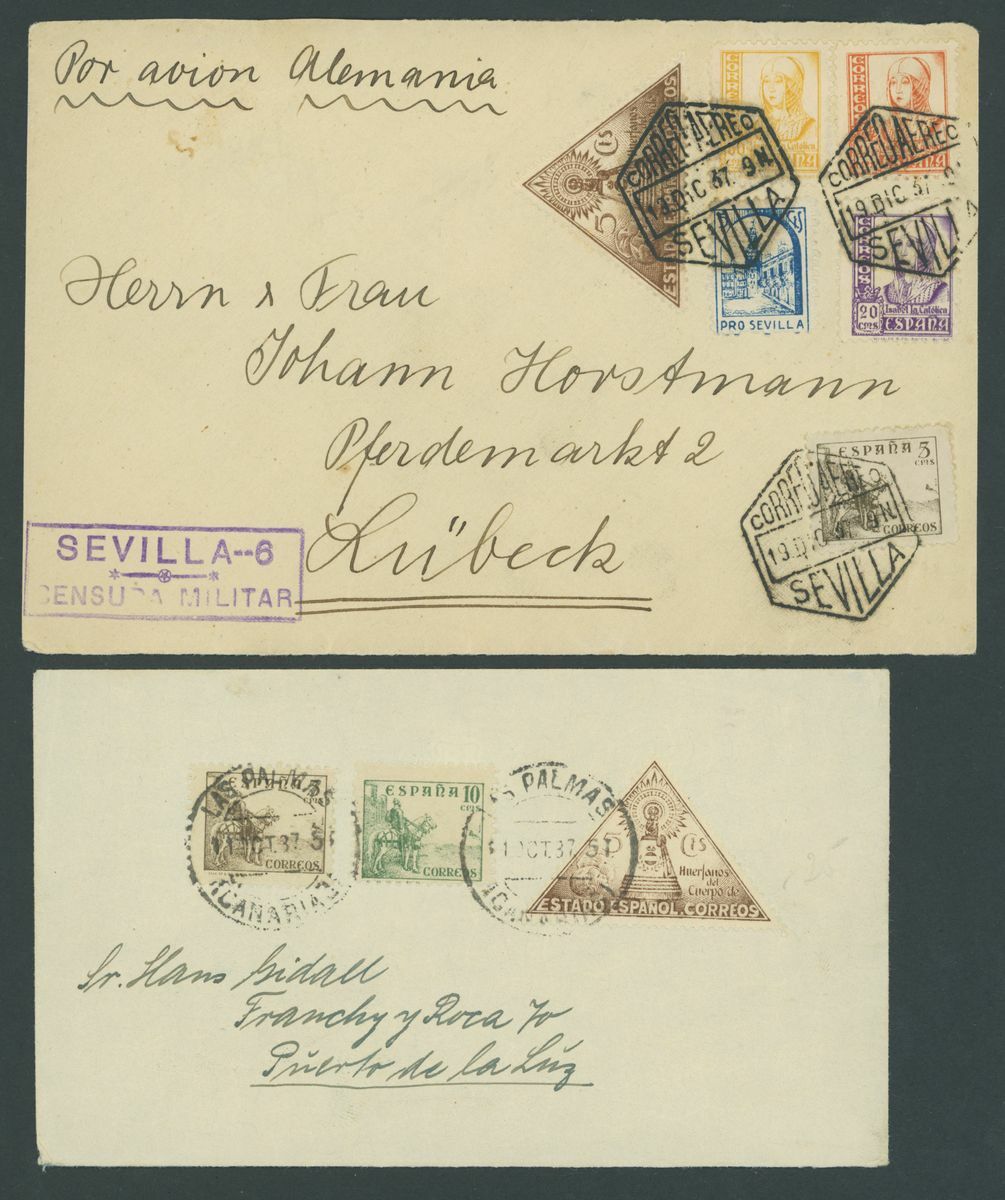 Por avion Alemania
CORREOS
5 Cts
Huerfanos
ESTADO
CORREOS
CORREO AEREO
19.DIC 37. 9N.
SEVILLA
CORREO AEREO
19.DIC 37
SEVILLA
PRO SEVILLA
20
CTMS
Isabel la Católica
ESPAÑA
Herrn & Frau
Johann Horstmann
Pferdemarkt 2
Lübeck
ESPAÑA 5
CTMS
CORREOS
CORREO AEREO
19.DIC 37 9N.
SEVILLA
SEVILLA--6
CENSURA MILITAR
ESPAÑA 5
CTMS
CORREOS
LAS PALMAS
11 OCT.37.5T
(CANARIAS)
ESPAÑA 10
CTMS
CORREOS
LAS PALMAS
11 OCT.37.5T
(CANARIAS)
5 Cts
Huerfanos
del
Cuerpo de
ESTADO ESPAÑOL.CORREOS
Sr. Hans Gidall
Franchy y Roca 70
Puerto de la Luz